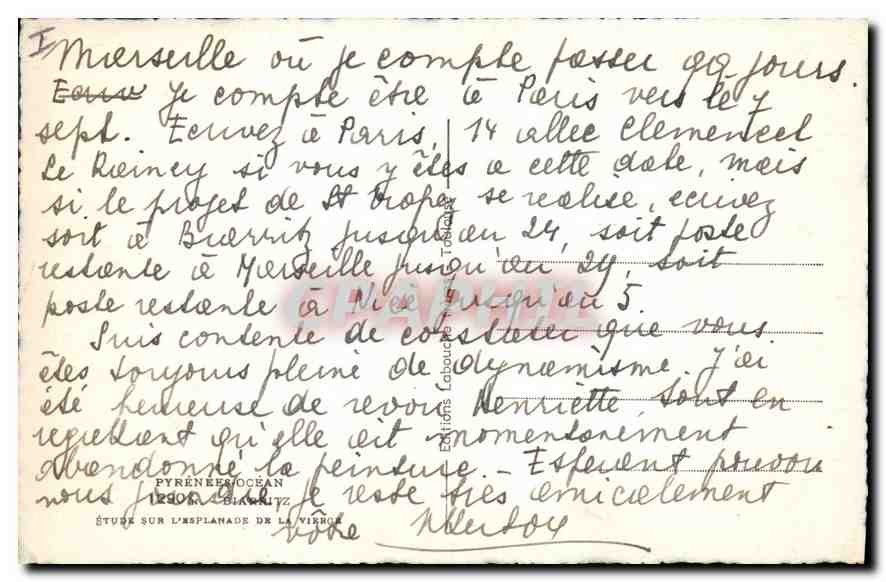 I Marseille où je compte passer qq jours.
Ecriv Je compte être à Paris vers le 7
sept. Ecrivez à Paris, 14 allée Clemencet
Le Raincy si vous y êtes a cette date, mais
si le projet de St Tropez se realise, ecrivez
soit à Biarritz jusqu'au 24, soit poste
restante à Marseille jusqu'au 29, soit
poste restante à Nice jusqu'au 5.
Suis contente de constater que vous
êtes toujours pleine de dynamisme. J'ai
été heureuse de revoir Henriette tout en
regrettant qu'elle ait momentanement
abandonné la peinture - Esperant pouvoir
nous je reste très amicalement
vôtre
PYRÉNÉES-OCÉAN
BIARRITZ
ÉTUDE SUR L'ESPLANADE DE LA VIERGE
Editions Labouche Toulouse
CPAPHIL